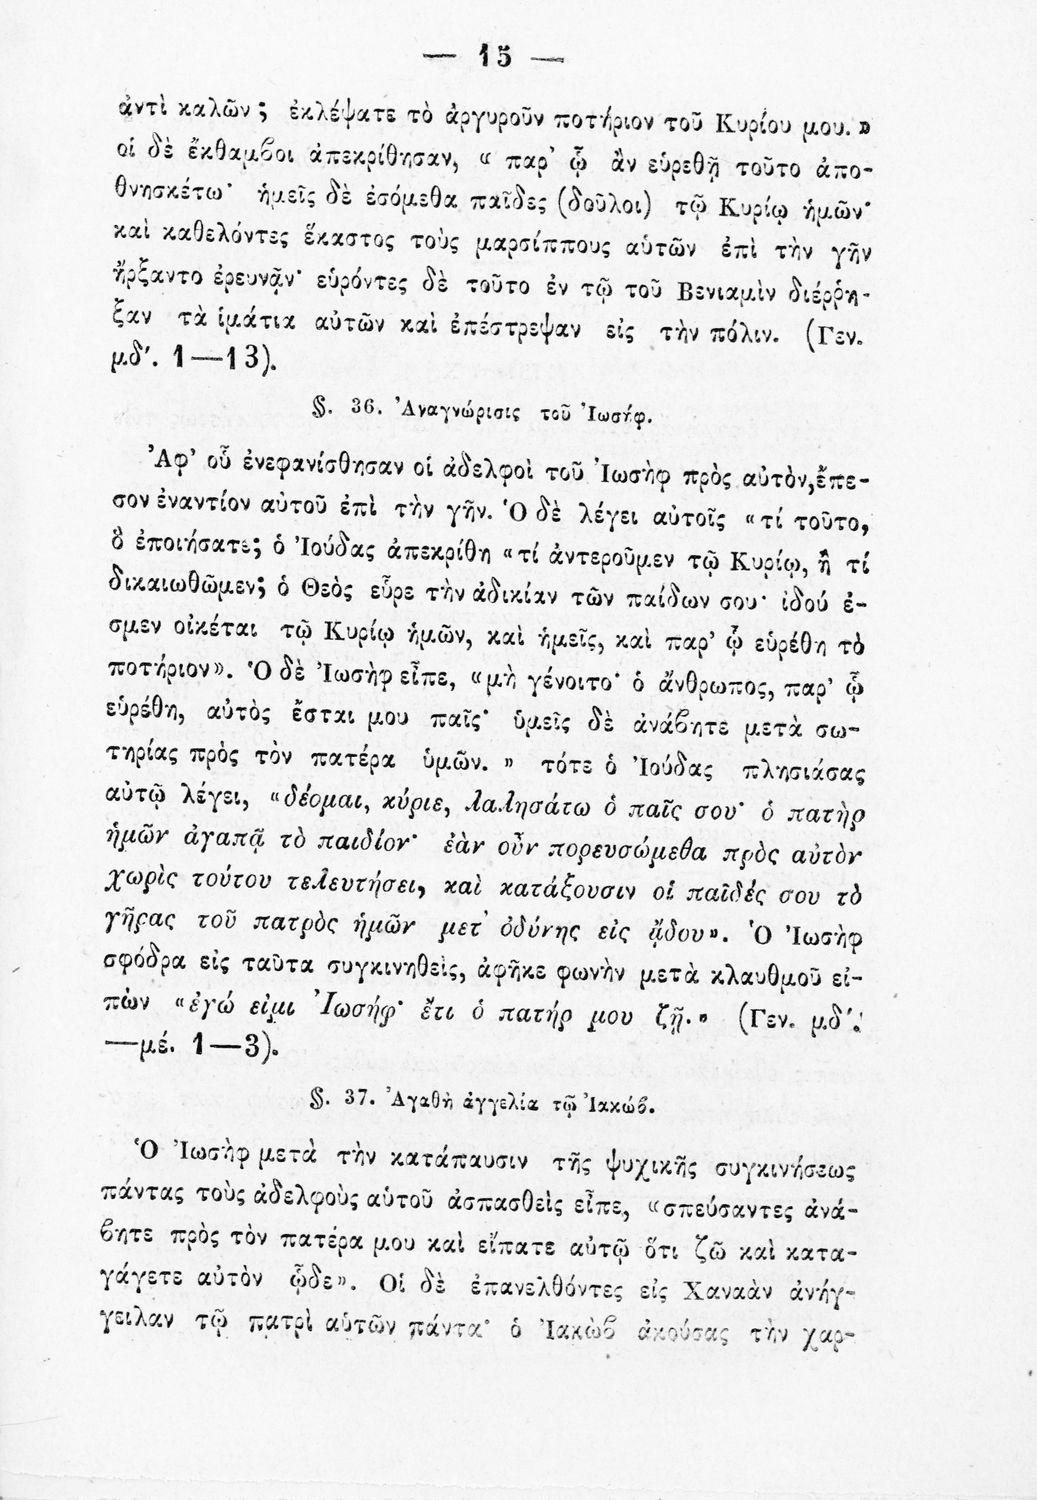 — 15 —
ἀντὶ καλῶν; ἐκλέψατε τὸ ἀργυροῦν ποτήριον τοῦ Κυρίου μου.»
οἱ δὲ ἔκθαμϐοι ἀπεκρίθησαν, « παρ’ ᾧ ἂν εὑρεθῇ τοῦτο ἀπο-
θνησκέτω· ἡμεῖς δὲ ἐσόμεθα παῖδες (δοῦλοι) τῷ Κυρίῳ ἡμῶν·
καὶ καθελόντες ἕκαστος τοὺς μαρσίππους αὑτῶν ἐπὶ τὴν γῆν
ἤρξαντο ἐρευνᾷν· εὑρόντες δὲ τοῦτο ἐν τῷ τοῦ Βενιαμὶν διέῤῥη-
ξαν τὰ ἱμάτια αὑτῶν καὶ ἐπέστρεψαν εἰς τὴν πόλιν. (Γεν.
μδ′. 1—13).
§. 36. Ἀναγνώρισις τοῦ Ἰωσήφ.
Ἀφ’ οὗ ἐνεφανίσθησαν οἱ ἀδελφοὶ τοῦ Ἰωσὴφ πρὸς αὐτὸν, ἔπε-
σον ἐναντίον αὐτοῦ ἐπὶ τὴν γῆν. Ὁ δὲ λέγει αὐτοῖς «τί τοῦτο,
ὃ ἐποιήσατε; ὁ Ἰούδας ἀπεκρίθη «τί ἀντεροῦμεν τῷ Κυρίῳ, ἢ τί
δικαιωθῶμεν; ὁ Θεὸς εὗρε τὴν ἀδικίαν τῶν παίδων σου· ἰδού ἐ-
σμεν οἰκέται τῷ Κυρίῳ ἡμῶν, καὶ ἡμεῖς, καὶ παρ’ ᾧ εὑρέθη τὸ
ποτήριον». Ὁ δὲ Ἰωσὴφ εἶπε, «μὴ γένοιτο· ὁ ἄνθρωπος, παρ’ ᾧ
εὑρέθη, αὐτὸς ἔσται μου παῖς· ὑμεῖς δὲ ἀνάϐητε μετὰ σω-
τηρίας πρὸς τὸν πατέρα ὑμῶν. » τότε ὁ Ἰούδας πλησιάσας
αὐτῷ λέγει, «δέομαι, κύριε, λαλησάτω ὁ παῖς σου· ὁ πατὴρ
ἡμῶν ἀγαπᾷ τὸ παιδίον· ἐὰν οὖν πορευσώμεθα πρὸς αὐτὸν
χωρὶς τούτου τελευτήσει, καὶ κατάξουσιν οἱ παῖδές σου τὸ
γῆρας τοῦ πατρὸς ἡμῶν μετ’ ὀδύνης εἰς ᾅδου». Ὁ Ἰωσὴφ
σφόδρα εἰς ταῦτα συγκινηθεὶς, ἀφῆκε φωνὴν μετὰ κλαυθμοῦ εἰ-
πὼν «ἐγώ εἰμι Ἰωσήφ· ἔτι ὁ πατήρ μου ζῇ.» (Γεν. μδ′.
—μέ. 1—3).
§. 37. Ἀγαθὴ ἀγγελία τῷ Ἰακώϐ.
Ὁ Ἰωσὴφ μετὰ τὴν κατάπαυσιν τῆς ψυχικῆς συγκινήσεως
πάντας τοὺς ἀδελφοὺς αὑτοῦ ἀσπασθεὶς εἶπε, «σπεύσαντες ἀνά-
ϐητε πρὸς τὸν πατέρα μου καὶ εἴπατε αὐτῷ ὅτι ζῶ καὶ κατα-
γάγετε αὐτὸν ᾧδε». Οἱ δὲ ἐπανελθόντες εἰς Χαναὰν ἀνήγ-
γειλαν τῷ πατρὶ αὑτῶν πάντα· ὁ Ἰακὼϐ ἀκούσας τὴν χαρ-